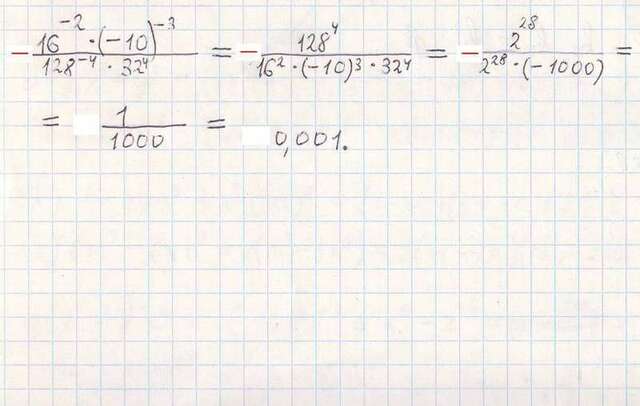 - 16^-2 · (-10)^-3 / 128^-4 · 32^4 = - 128^4 / 16^2 · (-10)^3 · 32^4 = - 2^28 / 2^28 · (-1000) =
= 1 / 1000 = 0,001.